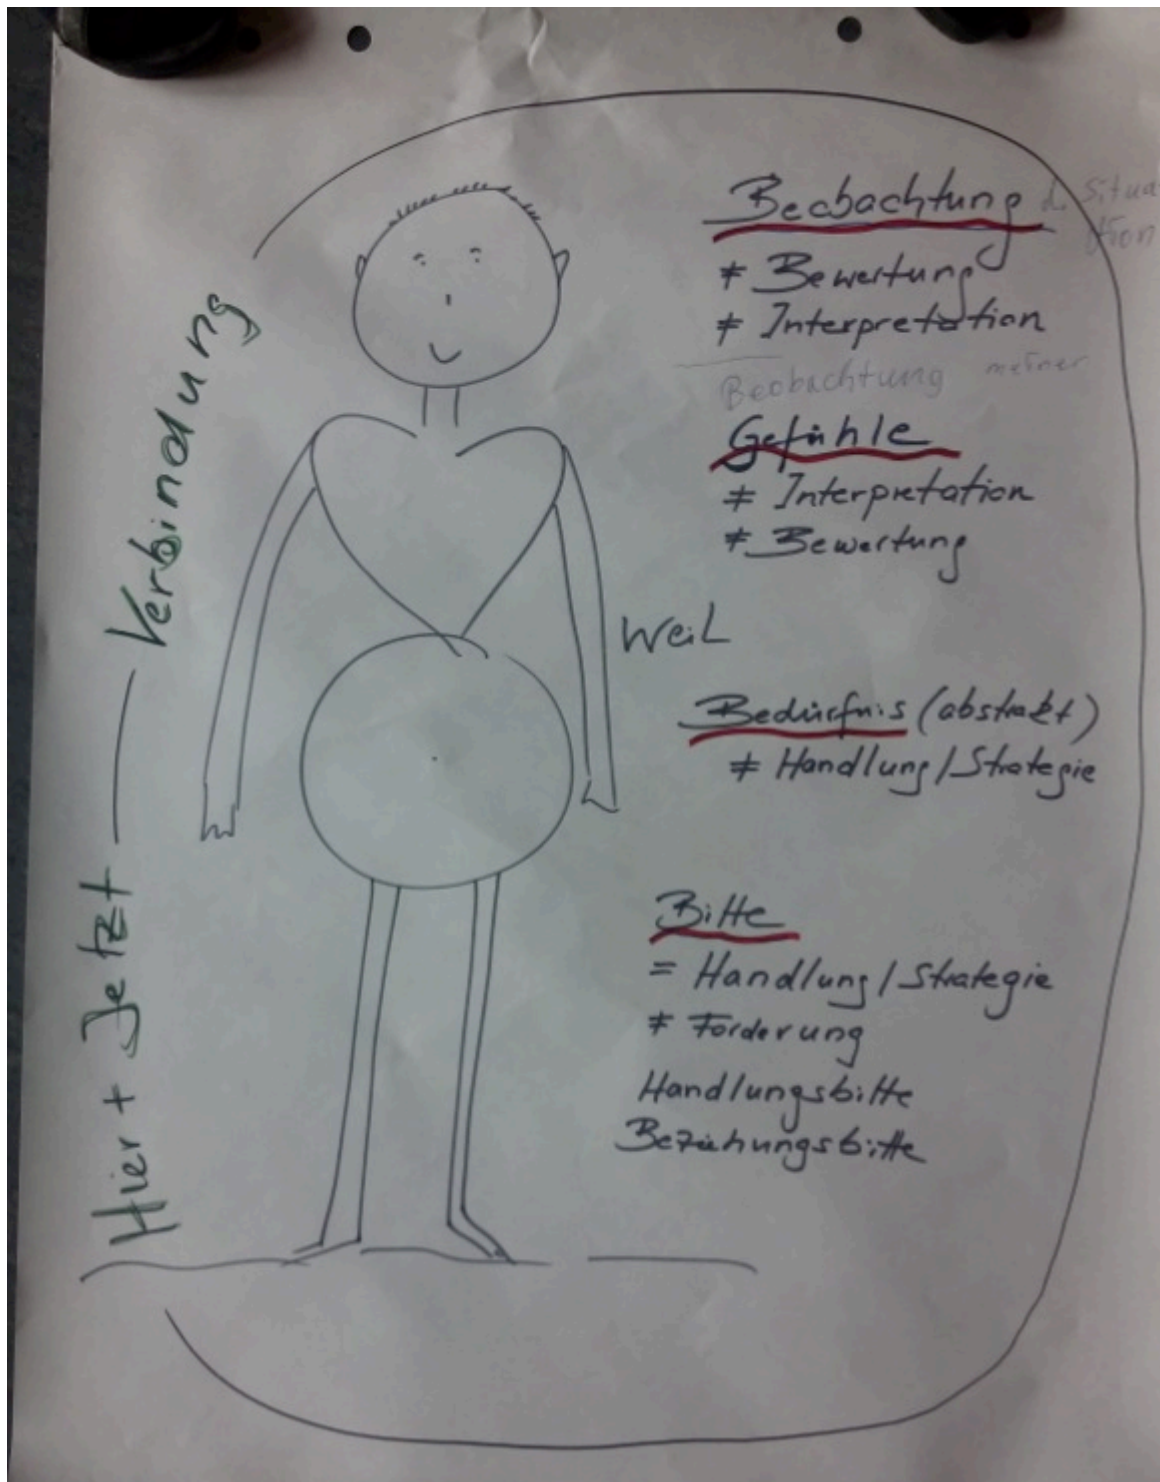 Beobachtung d. Situa
tion
≠ Bewertung
≠ Interpretation
Beobachtung meiner
Gefühle
≠ Interpretation
≠ Bewertung
weil
Bedürfnis (abstrakt)
≠ Handlung/Strategie
Bitte
= Handlung/Strategie
≠ Forderung
Handlungsbitte
Beziehungsbitte
Hier + Jetzt — Verbindung